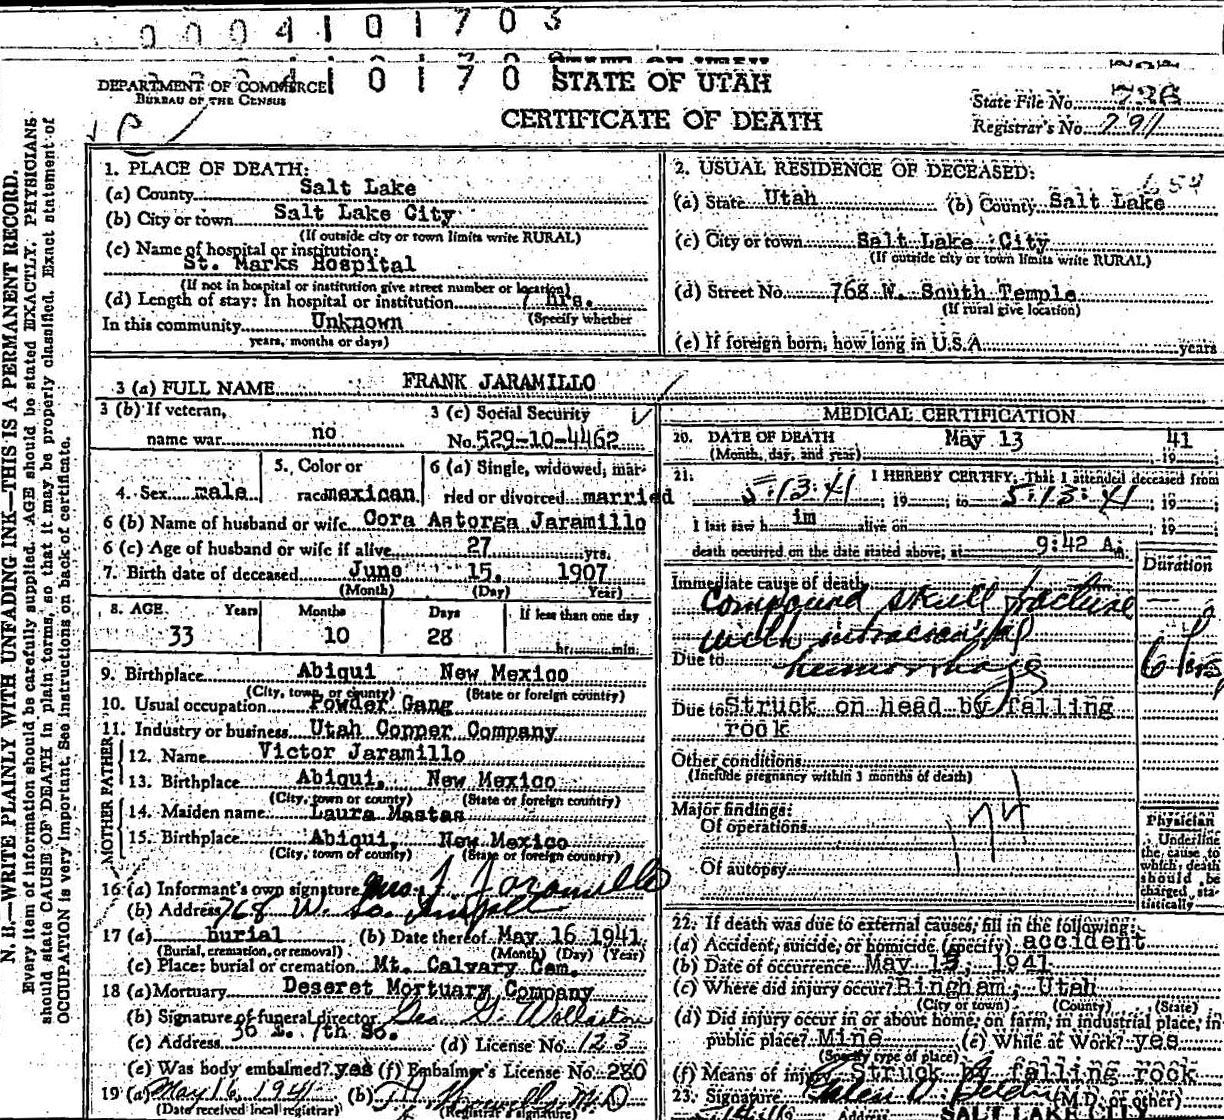 0 0 0 4 1 0 1 7 0 3
DEPARTMENT OF COMMERCE
BUREAU OF THE CENSUS
STATE OF UTAH
CERTIFICATE OF DEATH
State File No. 726
Registrar's No. 791
N. B.—WRITE PLAINLY WITH UNFADING INK—THIS IS A PERMANENT RECORD.
Every item of information should be carefully supplied. AGE should be stated EXACTLY. PHYSICIANS
should state CAUSE OF DEATH in plain terms, so that it may be properly classified. Exact statement of
OCCUPATION is very important. See instructions on back of certificate.
1. PLACE OF DEATH:
(a) County Salt Lake
(b) City or town Salt Lake City
(If outside city or town limits write RURAL)
(c) Name of hospital or institution:
St. Marks Hospital
(If not in hospital or institution give street number or location)
(d) Length of stay: In hospital or institution 7 hrs.
(Specify whether
In this community Unknown
years, months or days)
2. USUAL RESIDENCE OF DECEASED:
(a) State Utah (b) County Salt Lake
(c) City or town Salt Lake City
(If outside city or town limits write RURAL)
(d) Street No. 768 W. South Temple
(If rural give location)
(e) If foreign born, how long in U.S.A. years
3 (a) FULL NAME FRANK JARAMILLO
3 (b) If veteran,
name war no
3 (c) Social Security
No. 529-10-4462
4. Sex male
5. Color or
race mexican
6 (a) Single, widowed, mar-
ried or divorced married
6 (b) Name of husband or wife Cora Astorga Jaramillo
6 (c) Age of husband or wife if alive 27 yrs.
7. Birth date of deceased June 15, 1907
(Month) (Day) Year)
8. AGE Years Months Days If less than one day
33 10 28 hr. min.
9. Birthplace Abiqui New Mexico
(City, town, or county) (State or foreign country)
10. Usual occupation Powder Gang
11. Industry or business Utah Copper Company
FATHER
12. Name Victor Jaramillo
13. Birthplace Abiqui, New Mexico
(City, town or county) (State or foreign country)
MOTHER
14. Maiden name Laura Mastas
15. Birthplace Abiqui, New Mexico
(City, town or county) (State or foreign country)
16 (a) Informant's own signature Jaramillo
(b) Address 768 W. So. Temple
17 (a) burial (b) Date thereof May 16 1941
(Burial, cremation, or removal) (Month) (Day) (Year)
(c) Place: burial or cremation Mt. Calvary Cem.
18 (a) Mortuary Deseret Mortuary Company
(b) Signature of funeral director Geo. G.
(c) Address 36 E. 7th So. (d) License No. 123
(e) Was body embalmed? yes (f) Embalmer's License No. 280
19 (a) May 16, 1941 (b) M.D.
(Date received local registrar) (Registrar's signature)
MEDICAL CERTIFICATION
20. DATE OF DEATH May 13 1941
(Month, day, and year)
21. I HEREBY CERTIFY: That I attended deceased from
5-13-41, 19 to 5-13-41, 19 ;
I last saw h im alive on 19 ;
death occurred on the date stated above; at 9:42 A.m.
Duration
Immediate cause of death
Compound skull fracture
with intracranial
Due to hemorrhage 6 hrs
Due to Struck on head by falling
rock
Other conditions
(Include pregnancy within 3 months of death)
Major findings:
Of operations
Of autopsy
174
Physician
Underline
the cause to
which death
should be
charged sta-
tistically
22. If death was due to external causes, fill in the following:
(a) Accident, suicide, or homicide (specify) accident
(b) Date of occurrence May 13, 1941
(c) Where did injury occur? Bingham, Utah
(City or town) (County) (State)
(d) Did injury occur in or about home, on farm, in industrial place, in
public place? Mine (e) While at Work? yes
(Specify type of place)
(f) Means of injury Struck by falling rock
23. Signature (M.D. or other)
Address SALT LAKE CIT